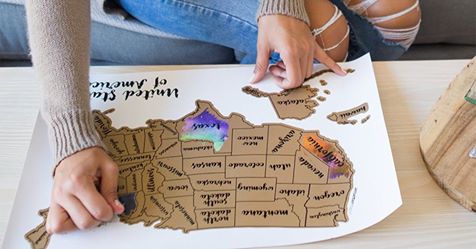 washington
montana
north
dakota
south
dakota
oregon
idaho
wyoming
nebraska
iowa
nevada
utah
colorado
kansas
california
arizona
new
mexico
oklahoma
texas
alaska
hawaii
United Sta
of America